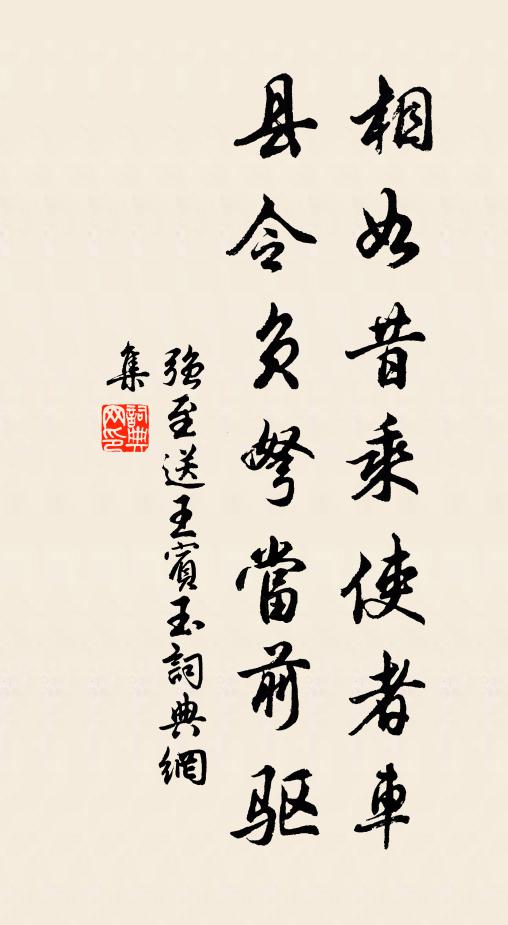 相如昔乘使者車
县令负弩當前驱
强至送王賓玉詞典網
集
詞典
网印